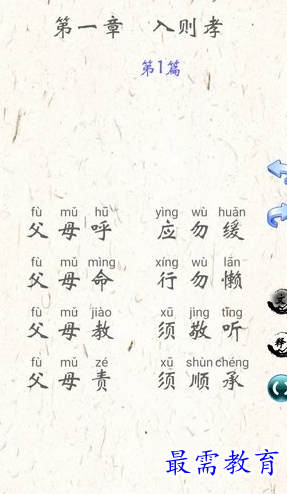 第一章 入则孝
第1篇
fù mǔ hū yìng wù huǎn
父母呼 应勿缓
fù mǔ mìng xíng wù lǎn
父母命 行勿懒
fù mǔ jiào xū jìng tīng
父母教 须敬听
fù mǔ zé xū shùn chéng
父母责 须顺承
文
释
最需教育